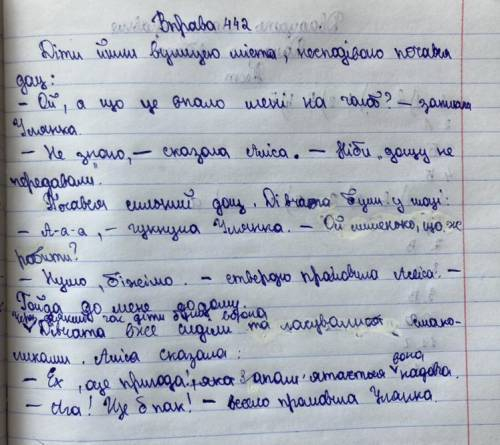 Вправа 442
Діти йшли вулицею міста, несподівано почався
дощ:
– Ой, а що це впало мені на голову? – запитала
Улянка.
– Не знаю, – сказала Аліса. – Ніби „дощу не
передавали".
Почався сильний дощ. Дівчата були у шоці:
– А-а-а, – гукнула Улянка. – Ой лишенько, що ж
робити?
– Нумо, біжімо. – ствердно промовила Аліса. –
Гайда до мене додому.
Через деякий час діти були вдома
Дівчата вже сиділи та ласувалися смако-
ликами. Аліса сказала:
– Ех, оце пригода, яка запам'ятається вона надовго.
– Ага! Ще б пак! – весело промовила Улянка.